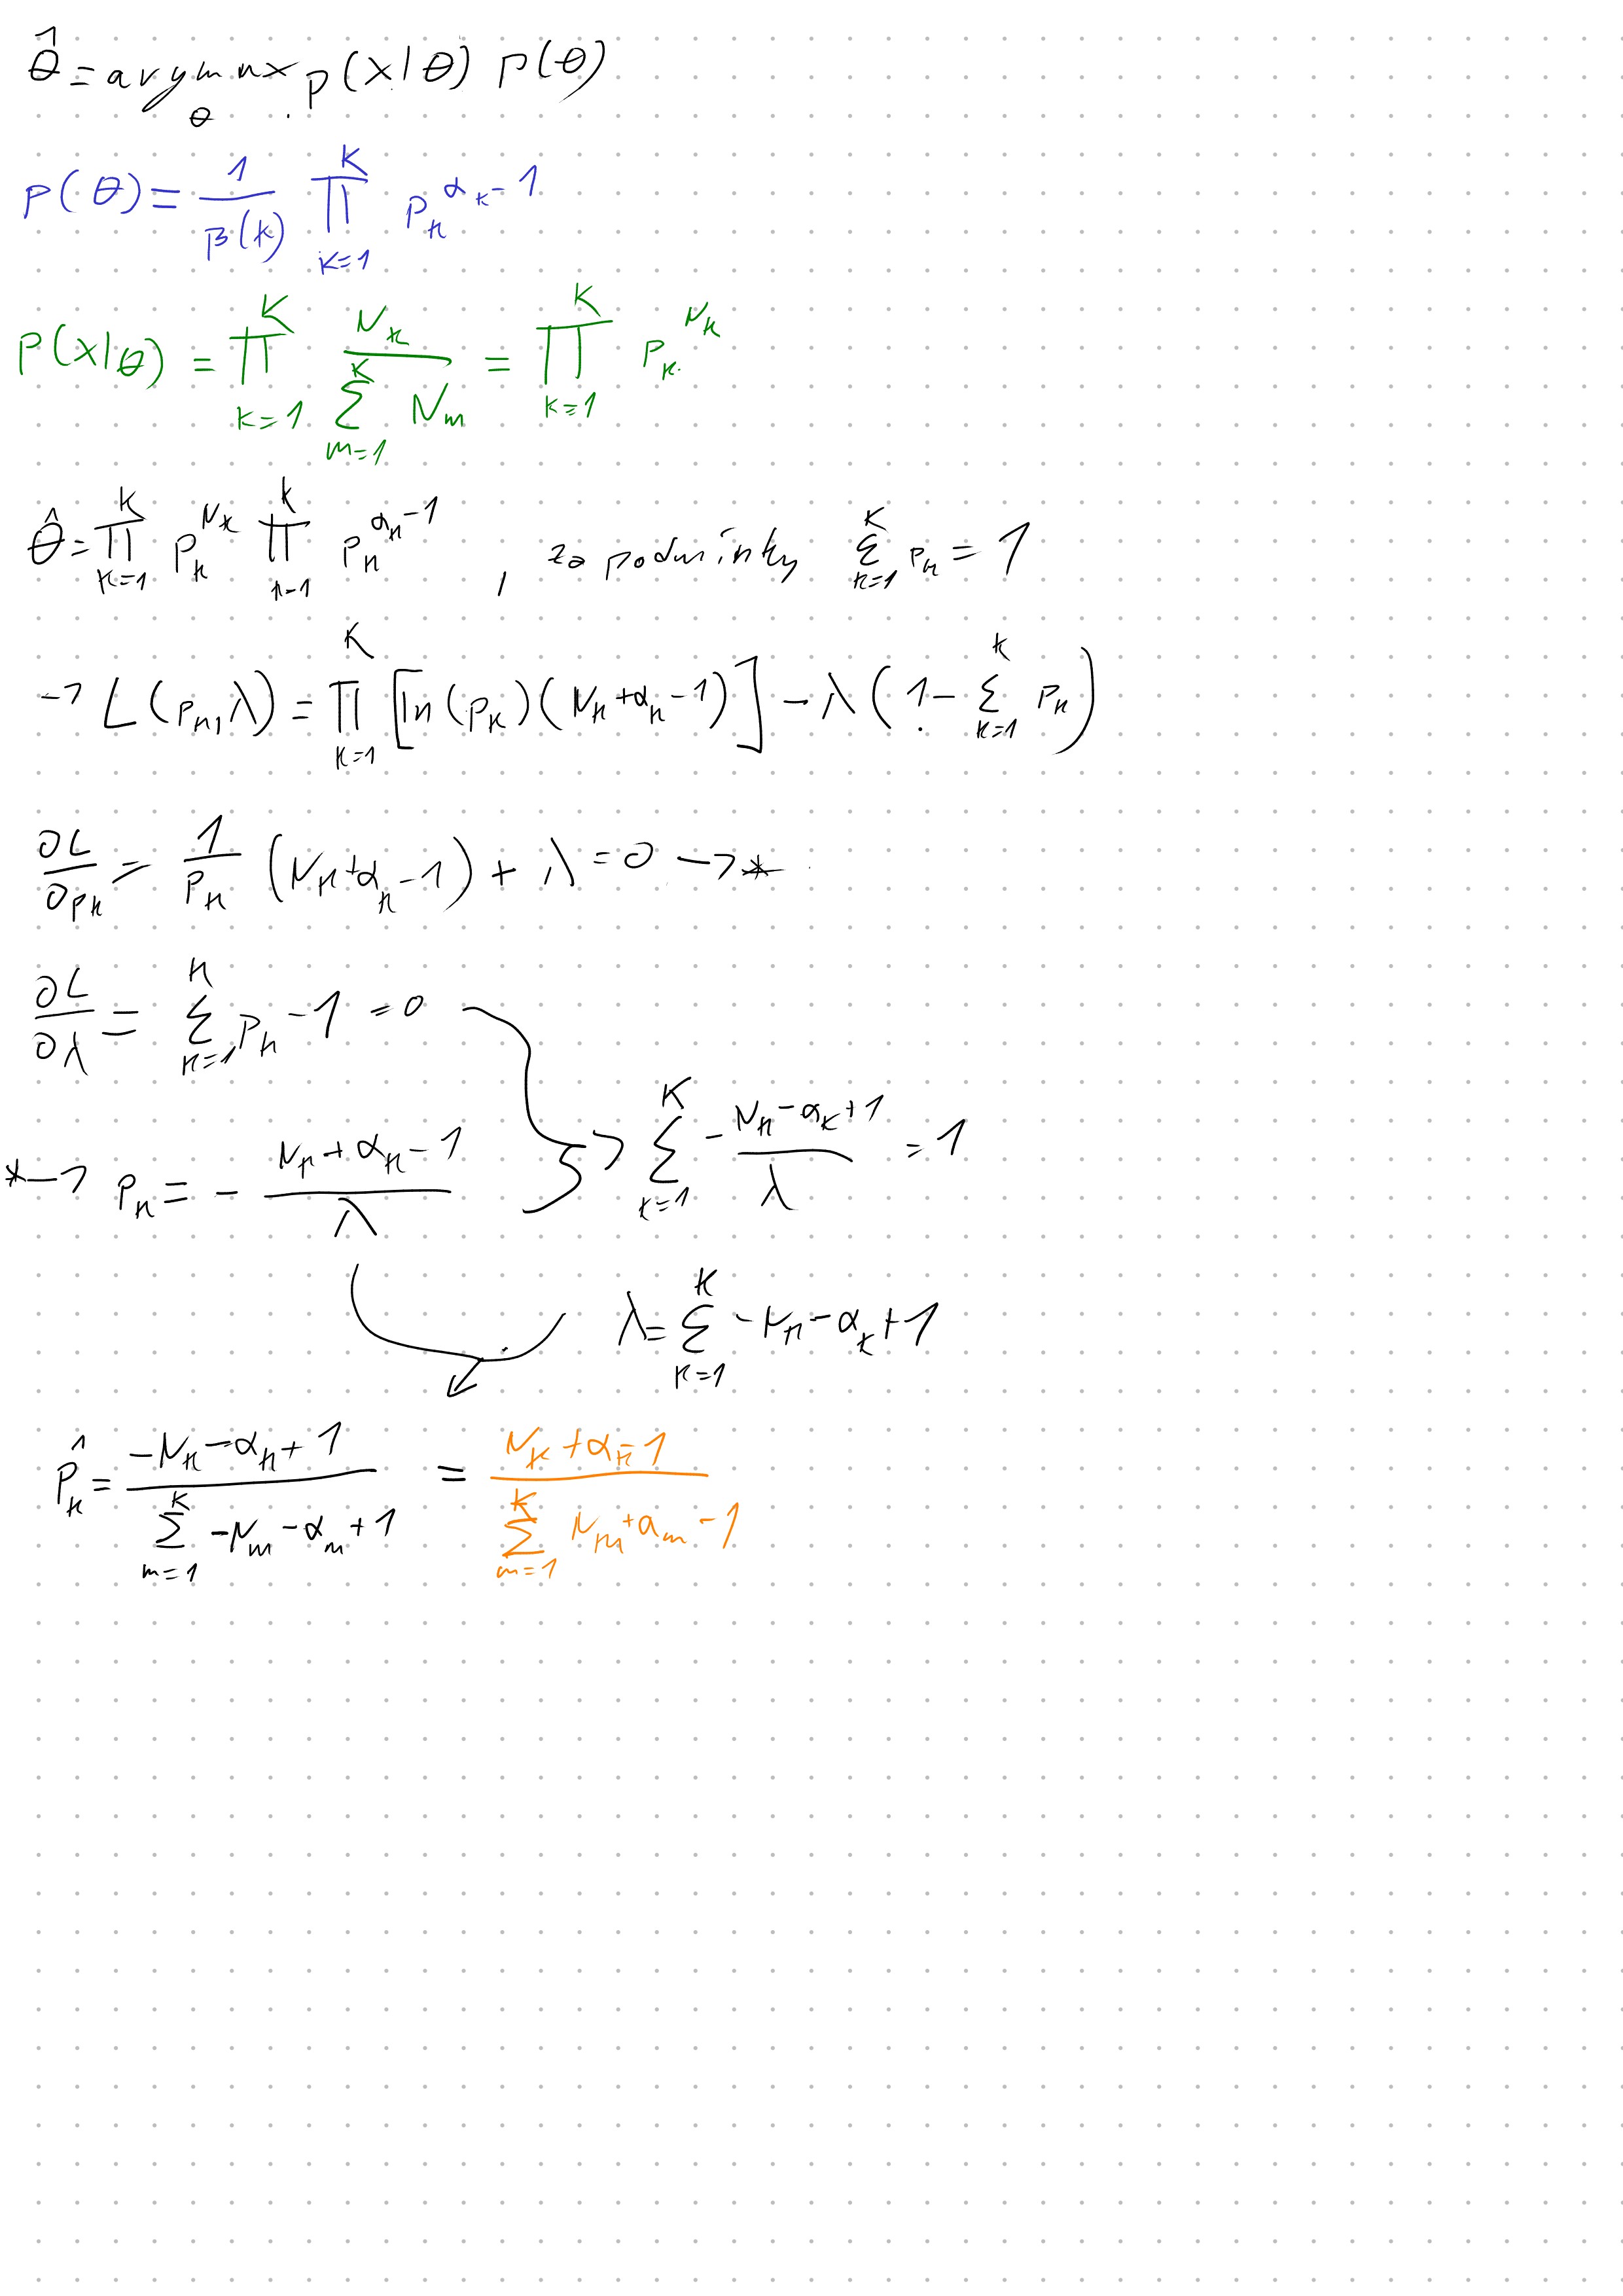 θ̂ = argmax_θ p(x|θ) P(θ)
P(θ) = 1/β(k) ∏_{k=1}^{K} p_k^{α_k - 1}
P(x|θ) = ∏_{k=1}^{K} N_k / ∑_{m=1}^{K} N_m = ∏_{k=1}^{K} p_k^{N_k}
θ̂ = ∏_{k=1}^{K} p_k^{N_k} ∏_{k=1}^{k} p_k^{α_k - 1} , za podmínky ∑_{k=1}^{K} p_k = 1
→ L(p_k, λ) = ∏_{k=1}^{K} [ln(p_k)(N_k + α_k - 1)] - λ(1 - ∑_{k=1}^{k} p_k)
∂L/∂p_k = 1/p_k (N_k + α_k - 1) + λ = 0 → *
∂L/∂λ = ∑_{k=1}^{k} p_k - 1 = 0
* → p_k = - (N_k + α_k - 1)/λ
} > ∑_{k=1}^{K} (-N_k - α_k + 1)/λ = 1
λ = ∑_{k=1}^{K} -N_k - α_k + 1
p̂_k = (-N_k - α_k + 1) / (∑_{m=1}^{K} -N_m - α_m + 1) = (N_k + α_k - 1) / (∑_{m=1}^{K} N_m + α_m - 1)